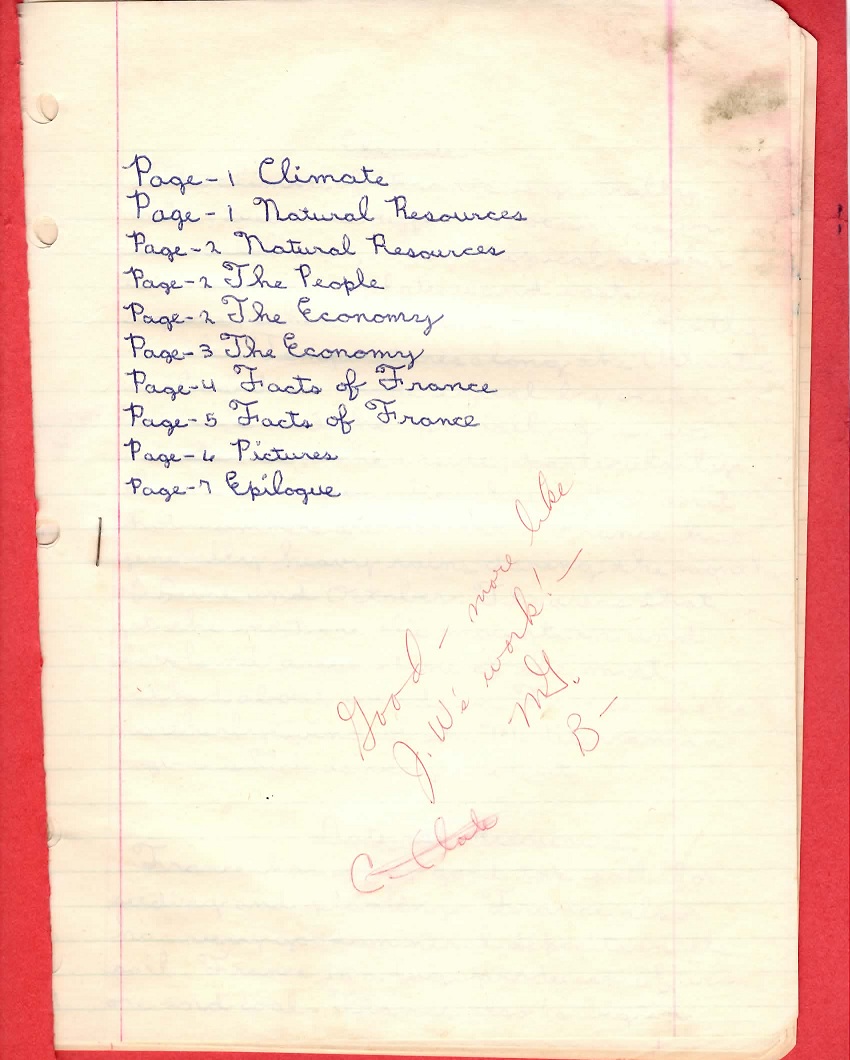 Page-1 Climate
Page-1 Natural Resources
Page-2 Natural Resources
Page-2 The People
Page-2 The Economy
Page-3 The Economy
Page-4 Facts of France
Page-5 Facts of France
Page-6 Pictures
Page-7 Epilogue
Good - more like
J.W's work! -
MG.
B-
C- (late